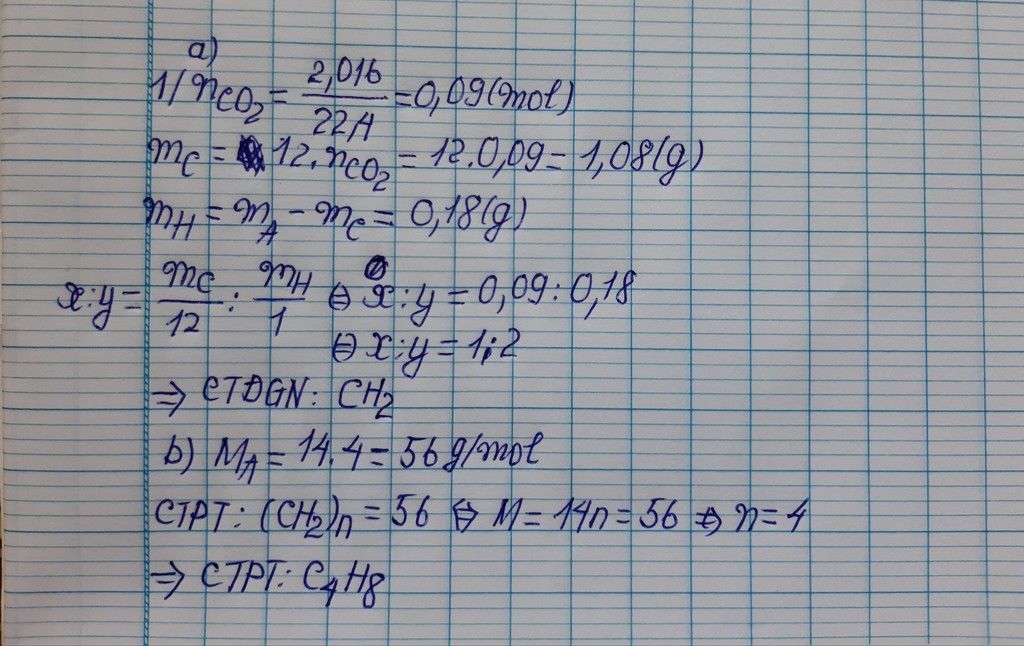 a)
1/ nCO₂ = 2,016/22,4 = 0,09(mol)
mC = 12.nCO₂ = 12.0,09 = 1,08(g)
mH = mA - mC = 0,18(g)
x:y = mC/12 : mH/1 ⇔ x:y = 0,09:0,18
⇔ x:y = 1:2
⇒ CTĐGN: CH₂
b) MA = 14.4 = 56 g/mol
CTPT: (CH₂)n = 56 ⇔ M = 14n = 56 ⇔ n = 4
⇒ CTPT: C₄H₈